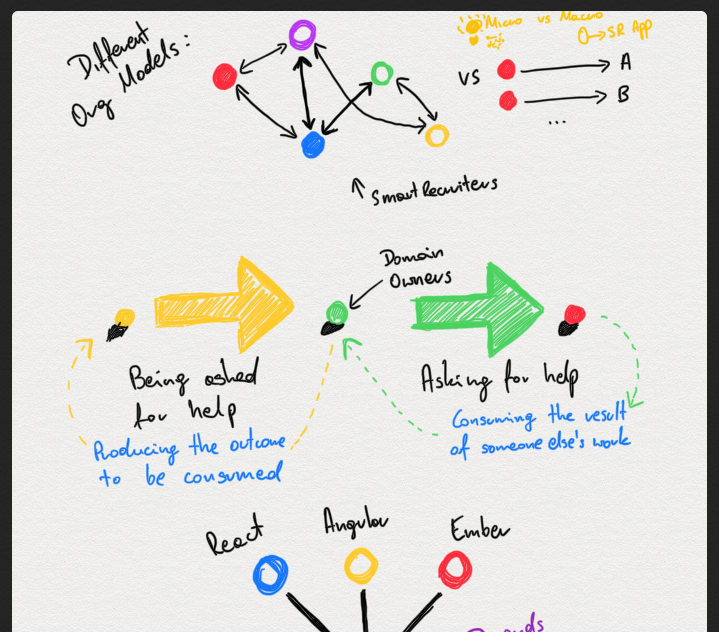 Different
Org Models:
Micro vs Macro
→ SR App
vs
A
B
...
SmartRecruiters
Domain
Owners
Being asked
for help
Asking for help
Producing the outcome
to be consumed
Consuming the result
of someone else's work
React
Angular
Ember